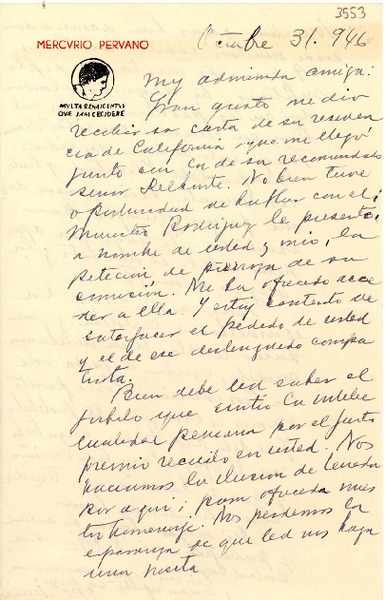 3553
MERCVRIO PERVANO
Octubre 31. 946
MVLTA RENASCENTVR
QVE IAM CECIDERE
My admirada amiga:
Gran gusto me dio
recibir su carta de su residen
cia de California que me llegó
junto con la de su recomendado
señor No bien tuve
oportunidad de hablar con el
Ministro Rodriguez le presenté,
a nombre de usted y mio, la
petición de prorroga de su
comisión. Me ha ofrecido acce
der a ella. Y estoy contento de
satisfacer el pedido de usted
y el de ese distinguido compa
triota.
Bien debe Ud saber el
jubilo que sintio la intelec
tualidad peruana por el justo
premio recaído en usted. Nos
haciamos la ilusion de tenerla
por aqui; para ofrecerla nues
tro homenaje. Nos perdemos la
esperanza de que Ud nos haga
una visita